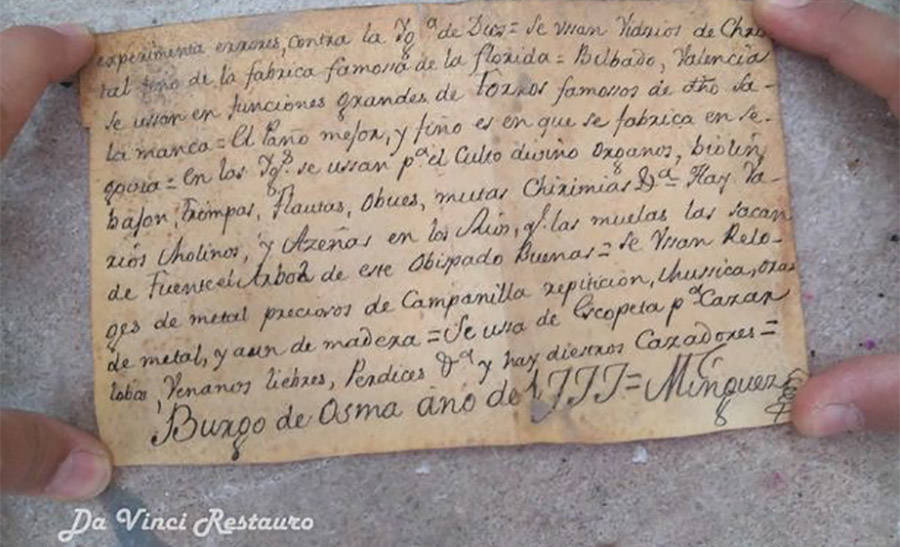 experimenta errores, contra la Ygª de Dios = Se vsan Vidrios de Chris
tal fino de la fabrica famossa de la florida = Bilbado, Valencia
se ussan en funciones grandes de Toros famossos de dho Sa-
lamanca = El Pano mejor, y fino es en que se fabrica en Se-
govia = en las Ygs. se ussan pª el Culto divino Organos, biolin,
bajon, trompas, Flautas, Obues, mutas Chirimias &ª = Hay Va-
rios Molinos, y Azeñas en los Rios, q.e las muelas las sacan
de Fuentcel Arbol de este Obispado Buenas = Se Vsan Relo-
ges de metal preciosos de Campanilla repiticion, Mussica, oras
de metal, y aun de madera = Se ussa de Escopeta pª Cazar
lobos, Venanos liebres, Perdices &ª y hay diestros Cazadores =
Burgo de Osma año de 1777 = Minguez
Da Vinci Restauro